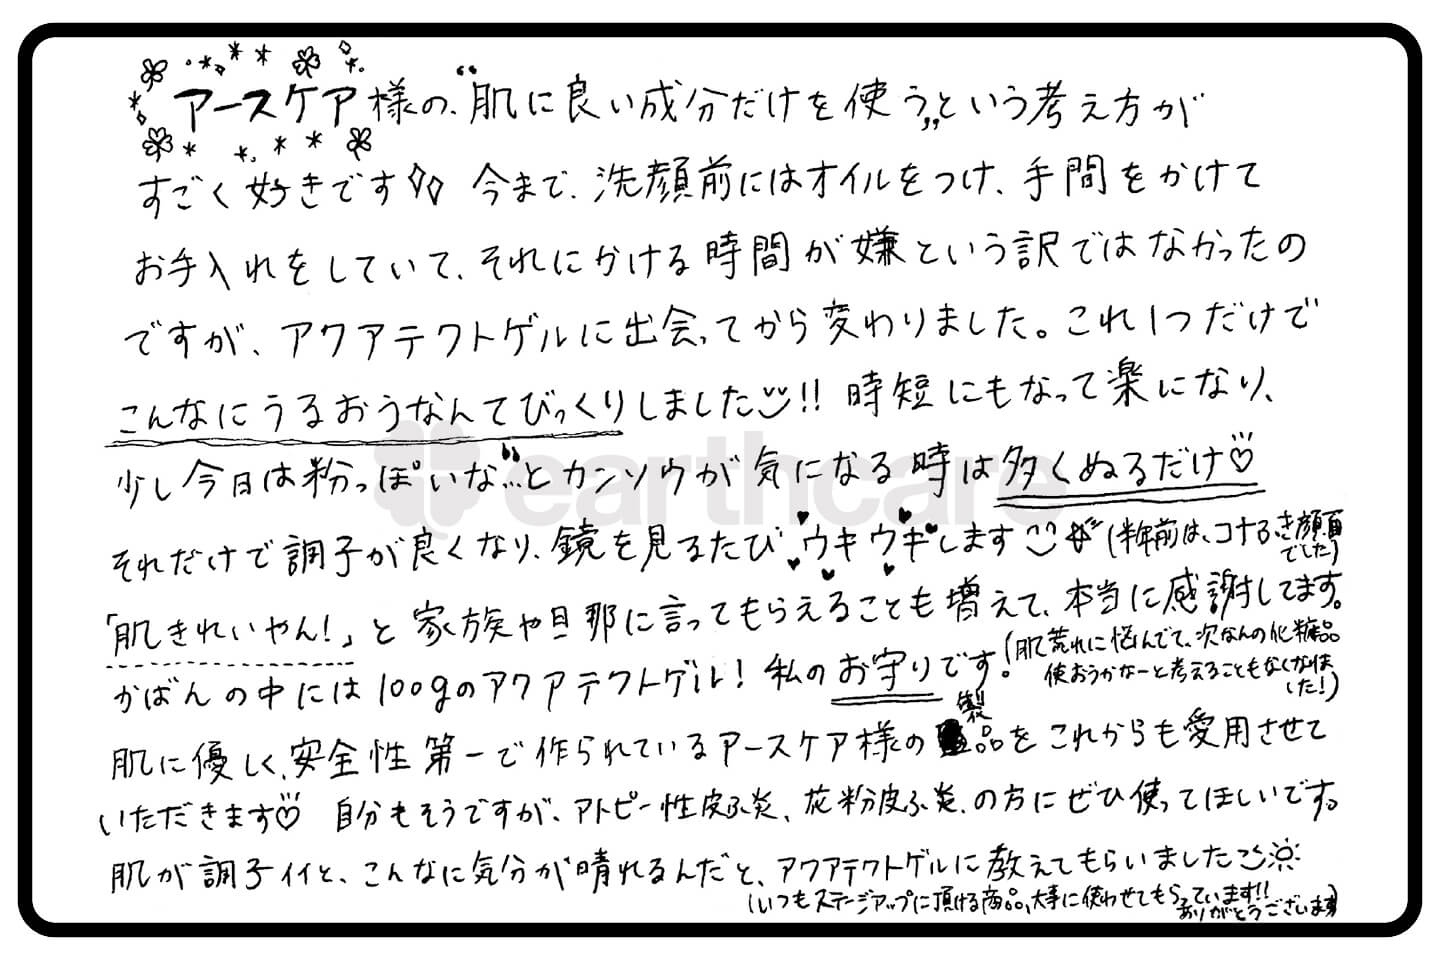 アースケア様の、“肌に良い成分だけを使う„という考え方が
すごく好きです 今まで、洗顔前にはオイルをつけ、手間をかけて
お手入れをしていて、それにかける時間が嫌という訳ではなかったの
ですが、アクアテクトゲルに出会ってから変わりました。これ1つだけで
こんなにうるおうなんてびっくりしました!! 時短にもなって楽になり、
少し今日は粉っぽいな…”とカンソウが気になる時は多くぬるだけ♡
earthcare
それだけで調子が良くなり、鏡を見るたびウキウキします(半年前は、コナふき顔
でした)
「肌きれいやん!」と家族や旦那に言ってもらえることも増えて、本当に感謝してます。
かばんの中には100gのアクアテクトゲル!私のお守りです!(肌荒れに悩んでて、次なんの化粧品
使おうかなーと考えることもなくなりま
した!)
肌に優しく、安全性第一で作られているアースケア様の製品をこれからも愛用させて
いただきます♡ 自分もそうですが、アトピー性皮ふ炎、花粉皮ふ炎、の方にぜひ使ってほしいです。
肌が調子イイと、こんなに気分が晴れるんだと、アクアテクトゲルに教えてもらいました
(いつもステージアップに頂ける商品、大事に使わせてもらっています!!
ありがとうございます)